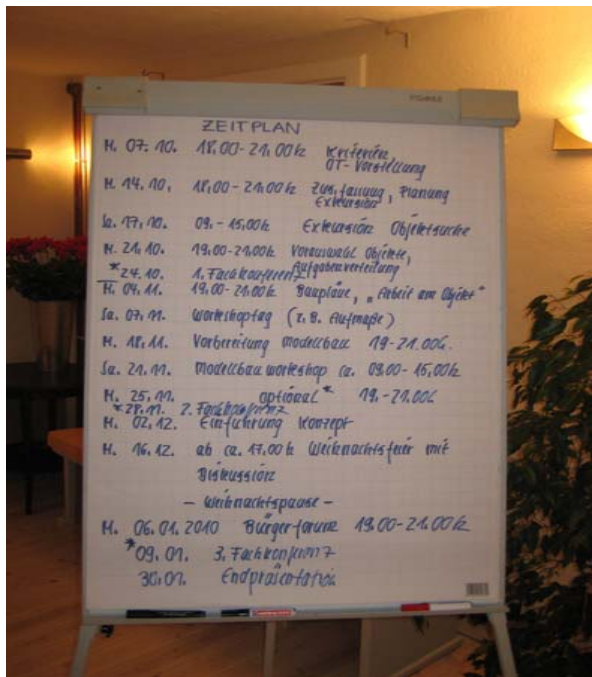 ZEITPLAN
M. 07.10. 18,00-21,00h Kriterien
OT-Vorstellung
M. 14.10. 18,00-21,00h Zus.fassung, Planung
Exkursion
Sa. 17.10. 09,-15,00h Exkursion Objektsuche
M. 21.10. 19,00-21,00h Vorauswahl Objekte,
Aufgabenverteilung
*24.10. 1. Fachkonferenz
M. 04.11. 19,00-21,00h Baupläne, „Arbeit am Objekt"
Sa. 07.11. Workshoptag (z.B. Aufmaße)
M. 18.11. Vorbereitung Modellbau 19-21.00h.
Sa. 21.11. Modellbauworkshop ca. 09.00-15,00h
M. 25.11. optional* 19,-21.00h
*28.11. 2. Fachkonferenz
M. 02.12. Einführung Konzept
M. 16.12. ab ca. 17,00h Weihnachtsfeier mit
Diskussion
- Weihnachtspause -
M. 06.01.2010 Bürgerforum 19.00-21.00h
*09.01. 3. Fachkonferenz
30.01. Endpräsentation